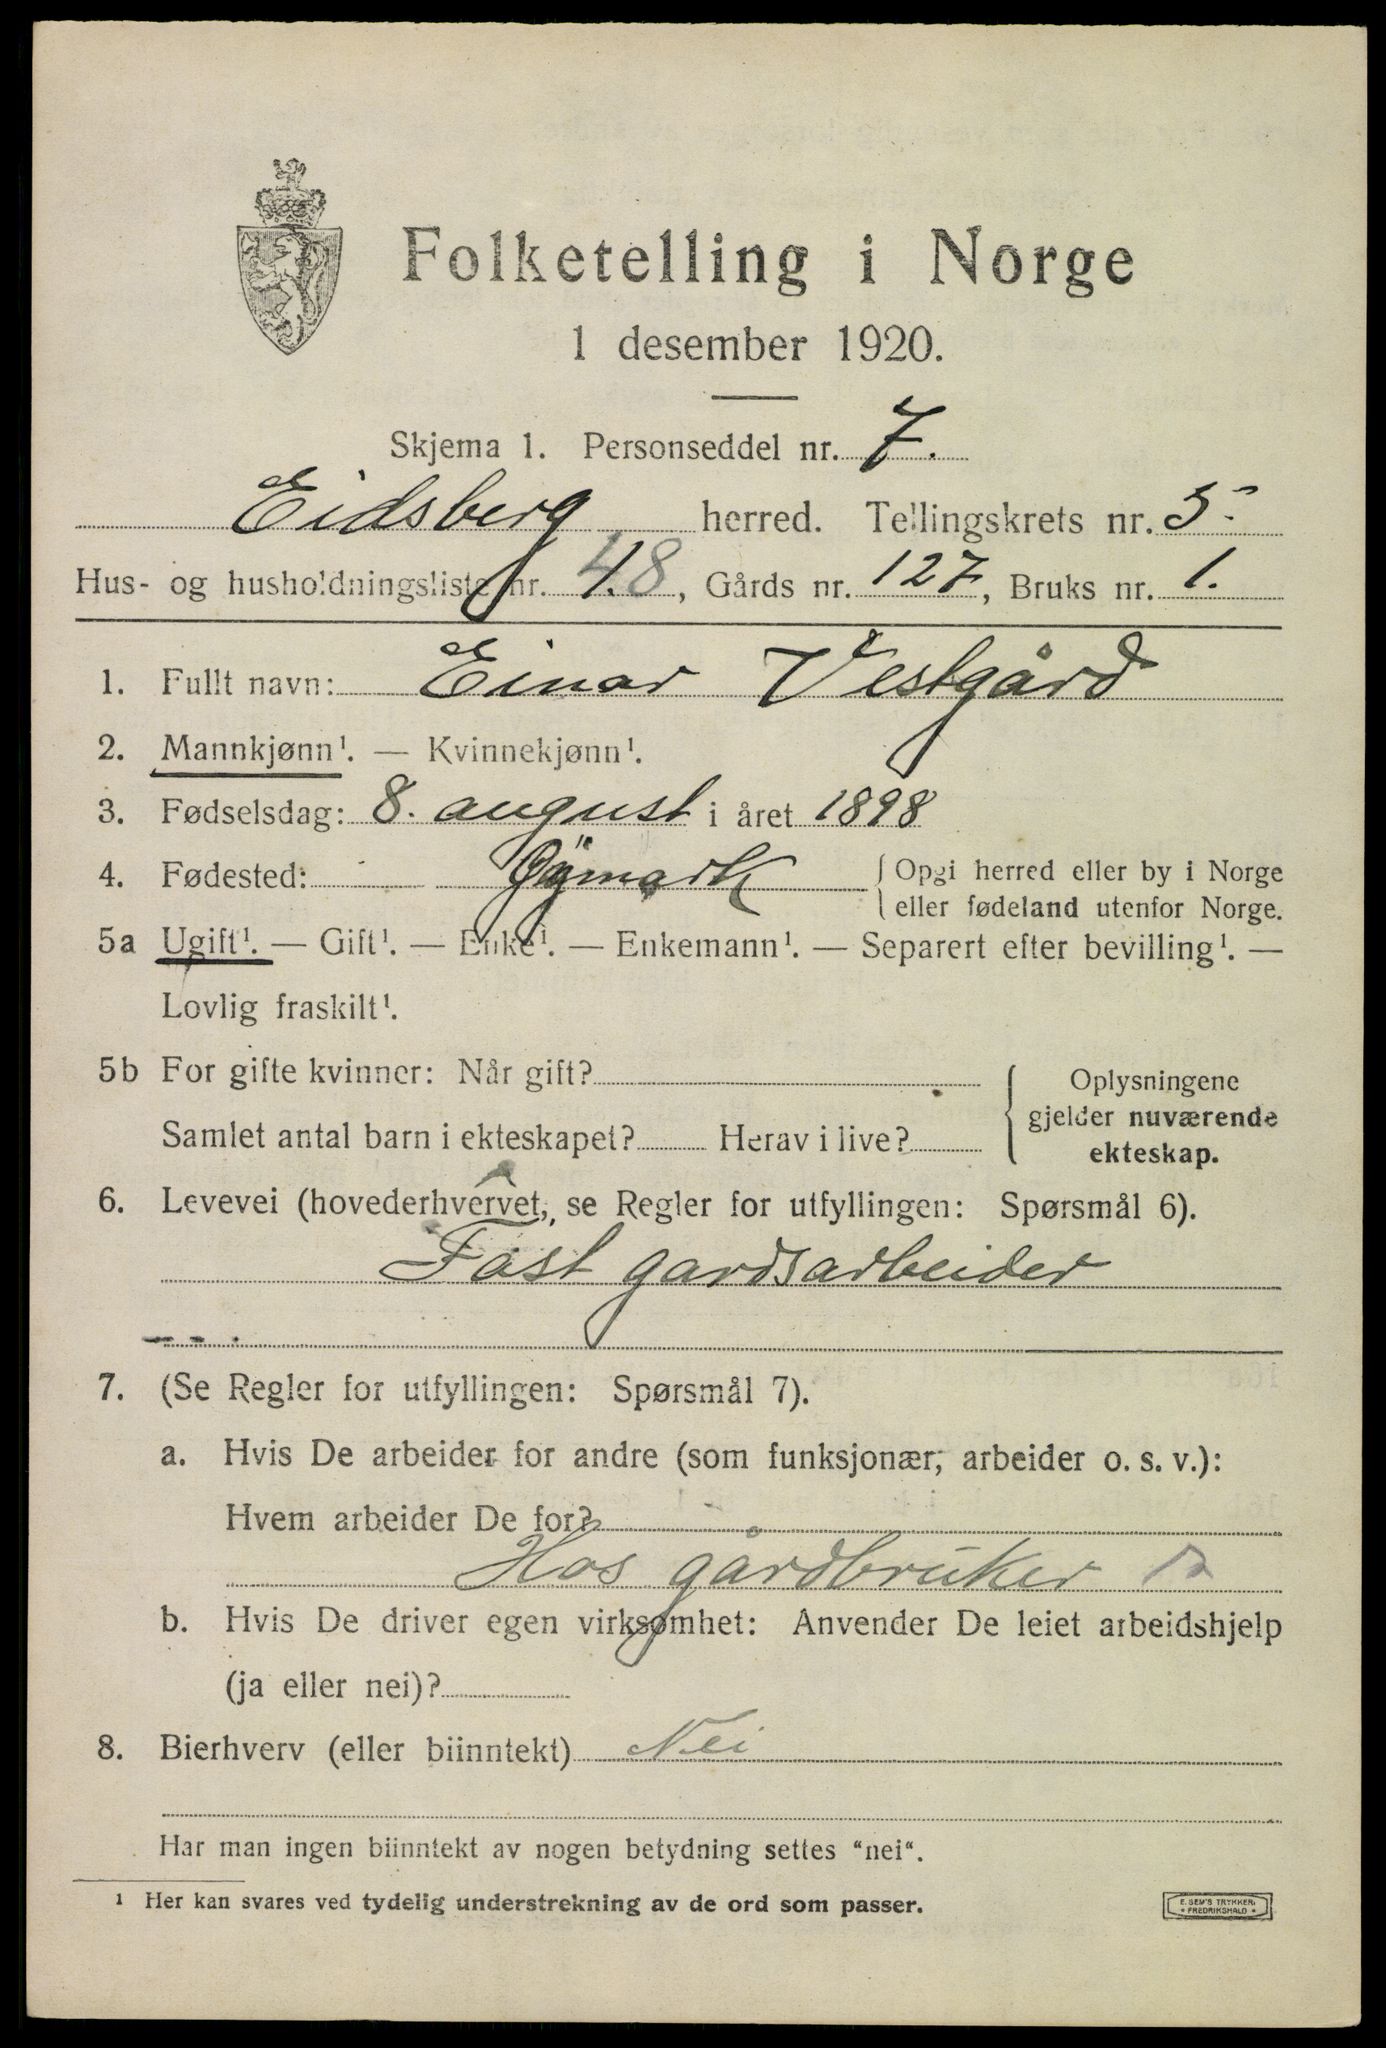 Folketelling i Norge
1 desember 1920.
Skjema 1. Personseddel nr. 7.
Eidsberg herred. Tellingskrets nr. 5.
Hus- og husholdningsliste nr. 48, Gårds nr. 127, Bruks nr. 1.
1. Fullt navn: Einar Vestgård
2. Mannkjønn¹. — Kvinnekjønn¹.
3. Fødselsdag: 8. august i året 1898
4. Fødested: Øymark { Opgi herred eller by i Norge
eller fødeland utenfor Norge.
5a Ugift¹. — Gift¹. — Enke¹. — Enkemann¹. — Separert efter bevilling¹. —
Lovlig fraskilt¹.
5b For gifte kvinner: Når gift? Oplysningene
gjelder nuværende
Samlet antal barn i ekteskapet? Herav i live?
ekteskap.
6. Levevei (hovederhvervet, se Regler for utfyllingen: Spørsmål 6).
Fast gardsarbeider
7. (Se Regler for utfyllingen: Spørsmål 7).
a. Hvis De arbeider for andre (som funksjonær, arbeider o. s. v.):
Hvem arbeider De for?
Hos gårdbruker
b. Hvis De driver egen virksomhet: Anvender De leiet arbeidshjelp
(ja eller nei)?
8. Bierhverv (eller biinntekt) Nei
Har man ingen biinntekt av nogen betydning settes "nei".
¹ Her kan svares ved tydelig understrekning av de ord som passer.
E. SEM'S TRYKKERI
FREDRIKSHALD